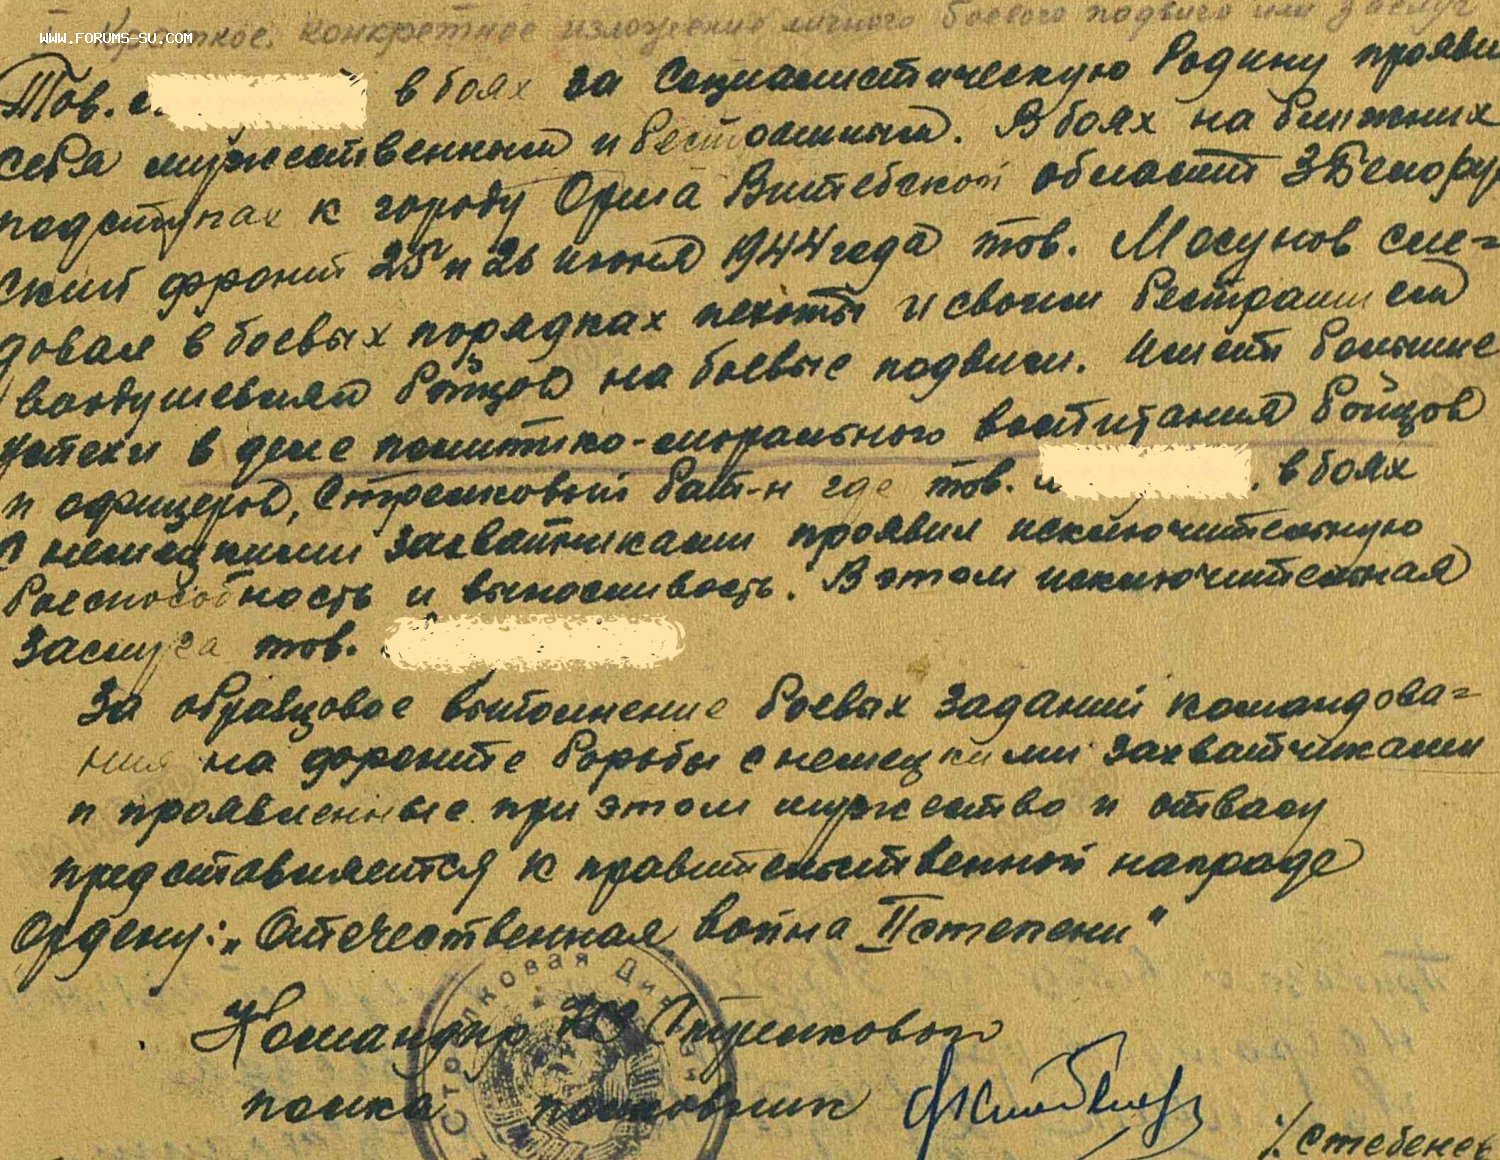 www.forums-su.com
Краткое, конкретное изложение личного боевого подвига или заслуг
Тов. в боях за Социалистическую Родину прояви
себя мужественным и бесстрашным. В боях на ближних
подступах к городу Орша Витебской области 3 Белорус
ский фронт 25 и 26 июня 1944 года тов. Мосунов сле=
довал в боевых порядках пехоты и своим бесстрашием
воодушевлял бойцов на боевые подвиги. Имеет большие
успехи в деле политико-морального воспитания бойцов
и офицеров, Стрелковый бат-н где тов. в боях
с немецкими захватчиками проявил исключительную
боеспособность и выносливость. В этом исключительная
заслуга тов.
За образцовое выполнение боевых заданий командова=
ния на фронте борьбы с немецкими захватчиками
и проявленные при этом мужество и отвагу
представляется к правительственной награде
Ордену: „Отечественная война II степени"
Стрелковая
Командир Стрелкового
полка полковник
/Стебенев